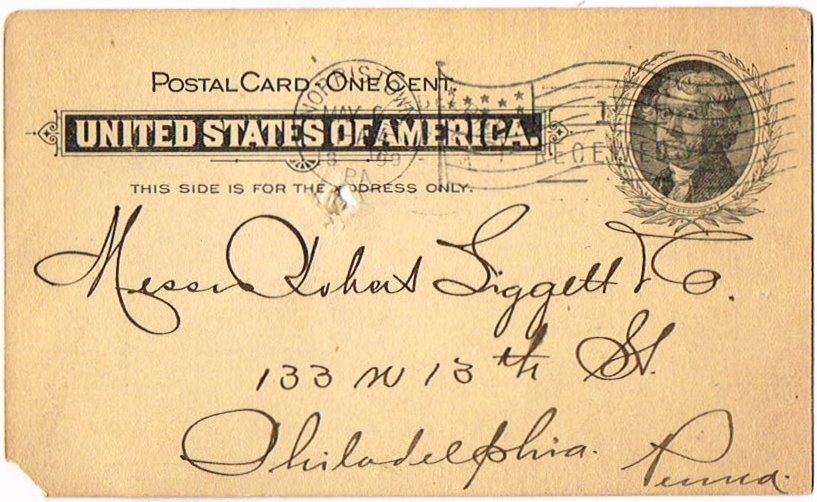 POSTAL CARD, ONE CENT.
UNITED STATES OF AMERICA.
THIS SIDE IS FOR THE ADDRESS ONLY.
NORRISTOWN
MAY 6
PA
RECEIVED
Messrs Robert Liggett & Co.
133 N 13th St.
Philadelphia.
Penna.